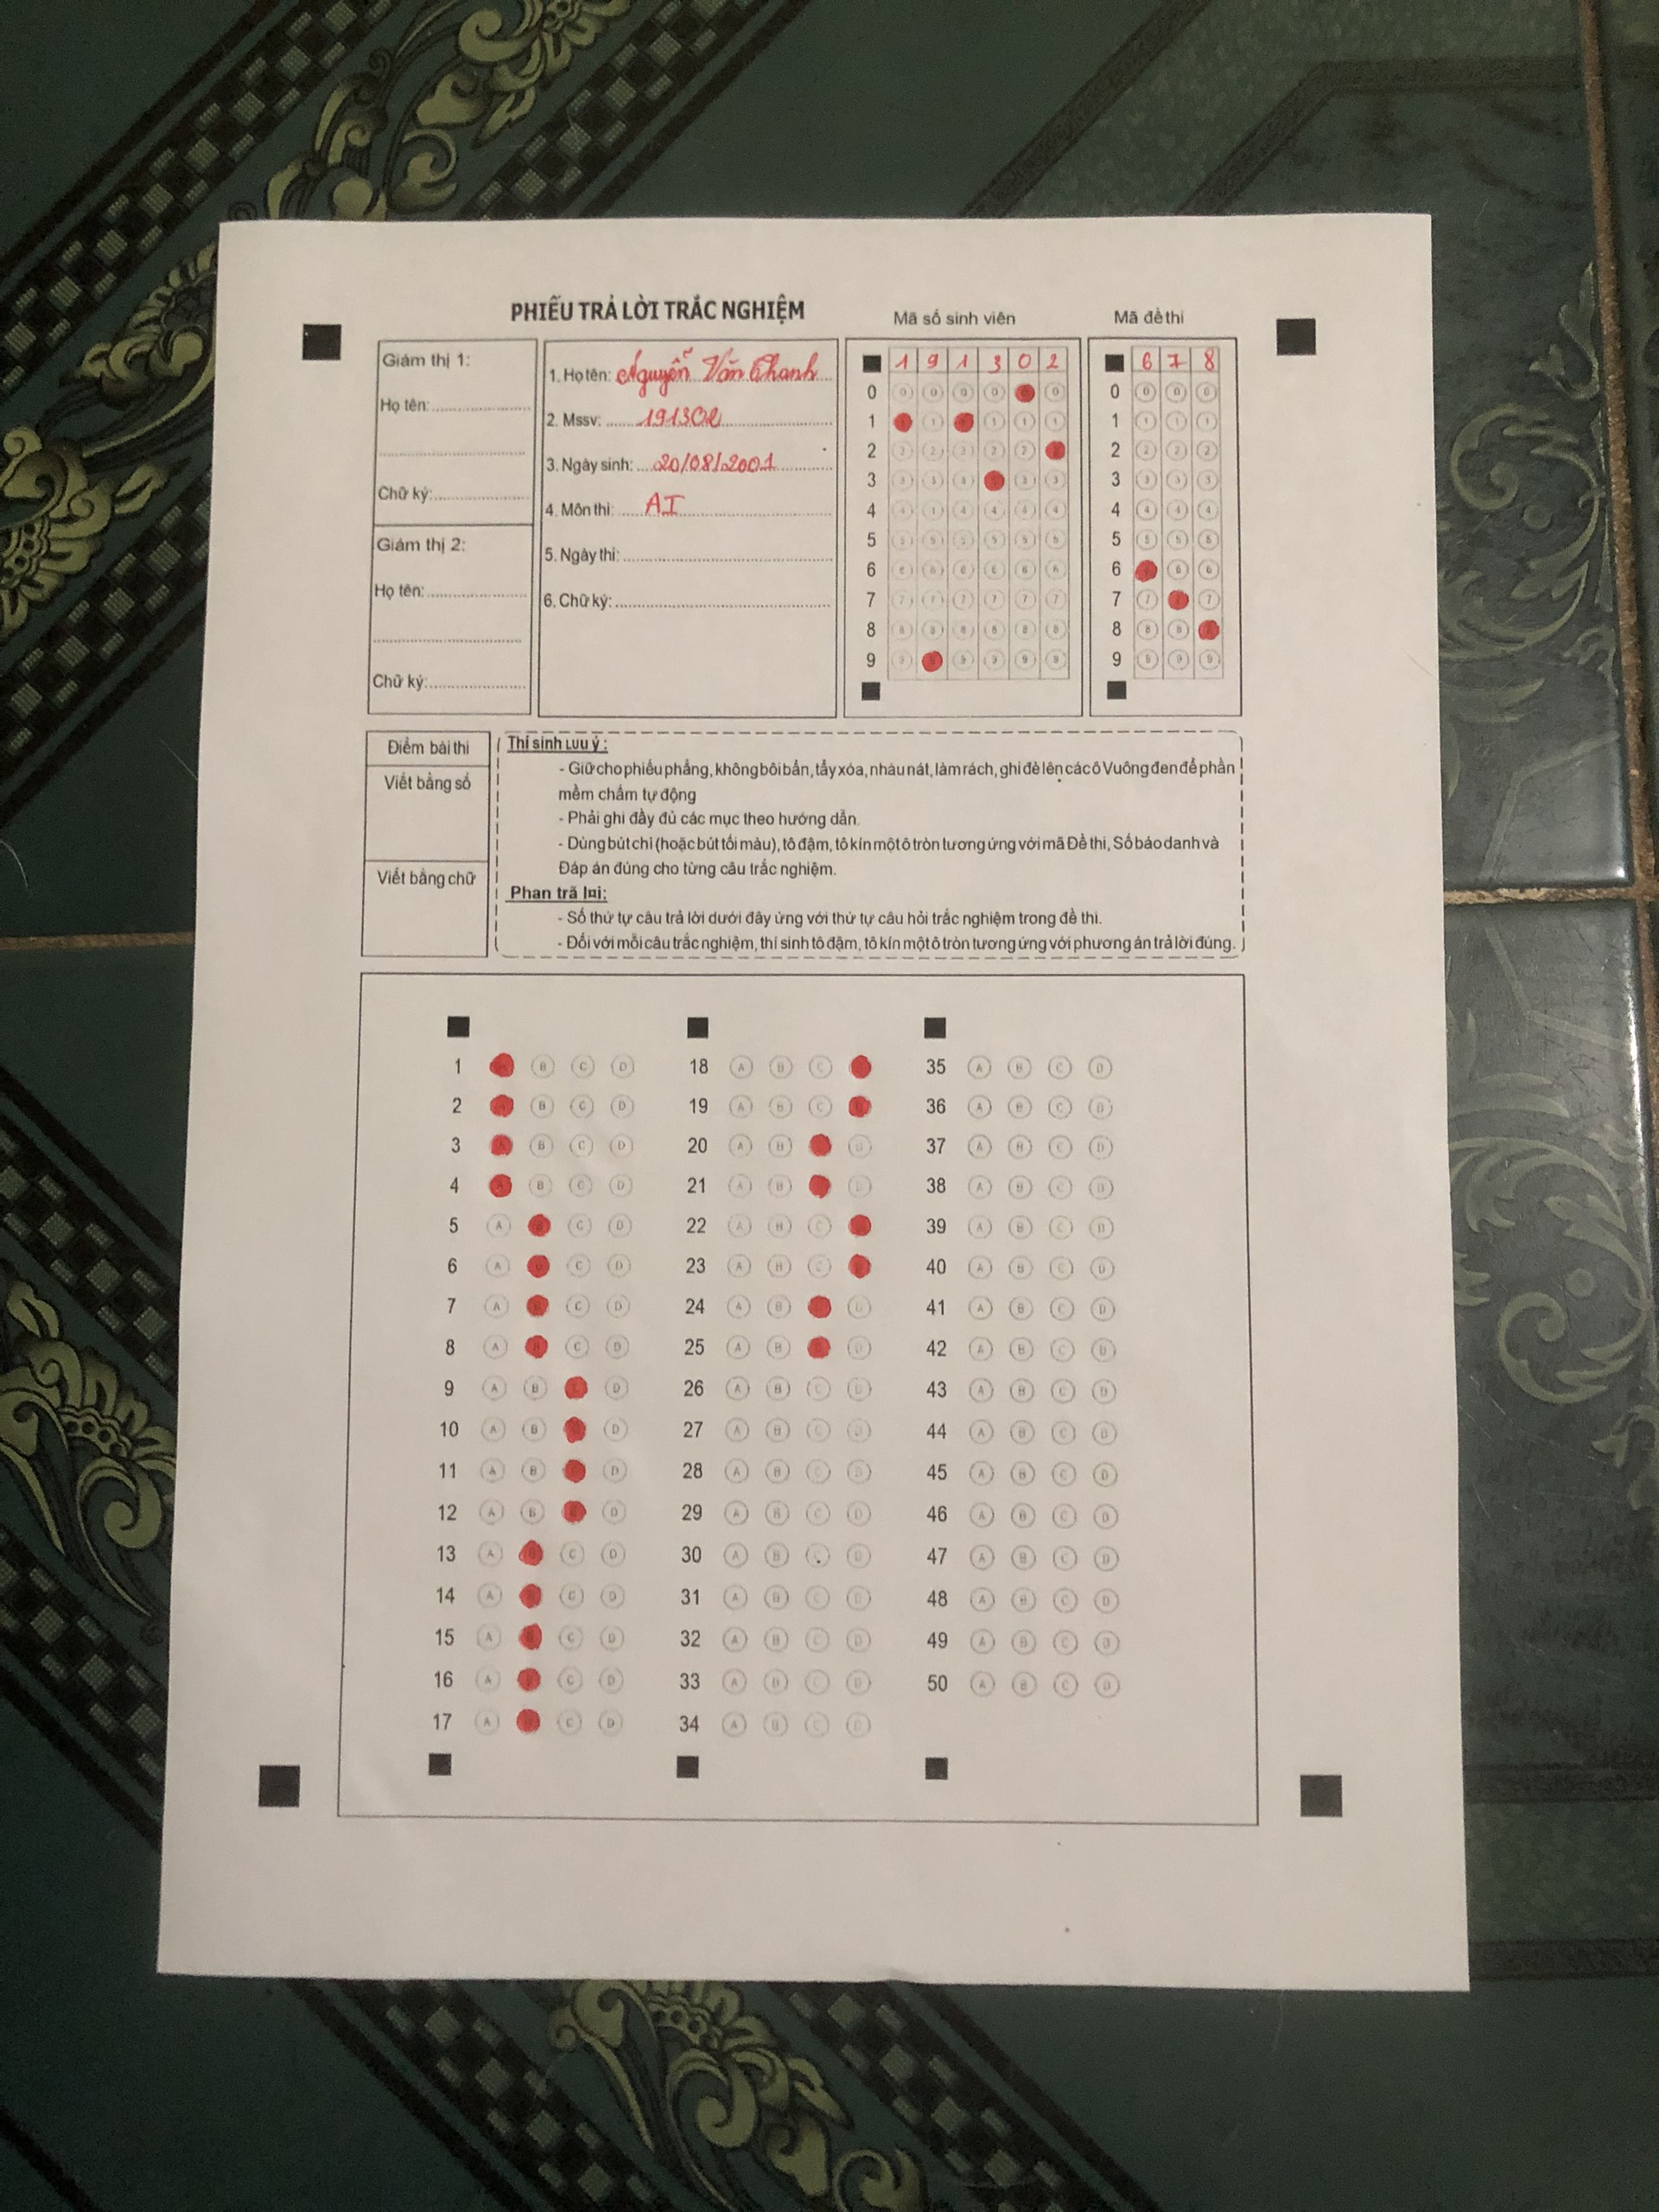 PHIẾU TRẢ LỜI TRẮC NGHIỆM
Mã số sinh viên
Mã đề thi
Giám thị 1:
Họ tên:
Chữ ký:
Giám thị 2:
Họ tên:
Chữ ký:
1. Họ tên: Nguyễn Văn Thanh
2. Mssv: 191302
3. Ngày sinh: 20/08/2001
4. Môn thi: AI
5. Ngày thi:
6. Chữ ký:
1 9 1 3 0 2
0
1
2
3
4
5
6
7
8
9
6 7 8
0
1
2
3
4
5
6
7
8
9
Điểm bài thi
Viết bằng số
Viết bằng chữ
Thí sinh Lưu ý:
- Giữ cho phiếu phẳng, không bôi bẩn, tẩy xóa, nhàu nát, làm rách, ghi đè lên các ô Vuông đen để phần
mềm chấm tự động
- Phải ghi đầy đủ các mục theo hướng dẫn.
- Dùng bút chì (hoặc bút tối màu), tô đậm, tô kín một ô tròn tương ứng với mã Đề thi, Số báo danh và
Đáp án đúng cho từng câu trắc nghiệm.
Phan trã lại:
- Số thứ tự câu trả lời dưới đây ứng với thứ tự câu hỏi trắc nghiệm trong đề thi.
- Đối với mỗi câu trắc nghiệm, thí sinh tô đậm, tô kín một ô tròn tương ứng với phương án trả lời đúng.
1 B C D
2 B C D
3 A B C D
4 A B C D
5 A B C D
6 A B C D
7 A B C D
8 A B C D
9 A B C D
10 A B C D
11 A B C D
12 A B C D
13 A B C D
14 A B C D
15 A B C D
16 A B C D
17 A B C D
18 A B C
19 A B C D
20 A B D
21 A B D
22 A B C D
23 A B C D
24 A B C D
25 A B C D
26 A B C D
27 A B C D
28 A B C D
29 A B C D
30 A B C D
31 A B C D
32 A B C D
33 A B C D
34 A B C D
35 A B C D
36 A B C D
37 A B C D
38 A B C D
39 A B C D
40 A B C D
41 A B C D
42 A B C D
43 A B C D
44 A B C D
45 A B C D
46 A B C D
47 A B C D
48 A B C D
49 A B C D
50 A B C D